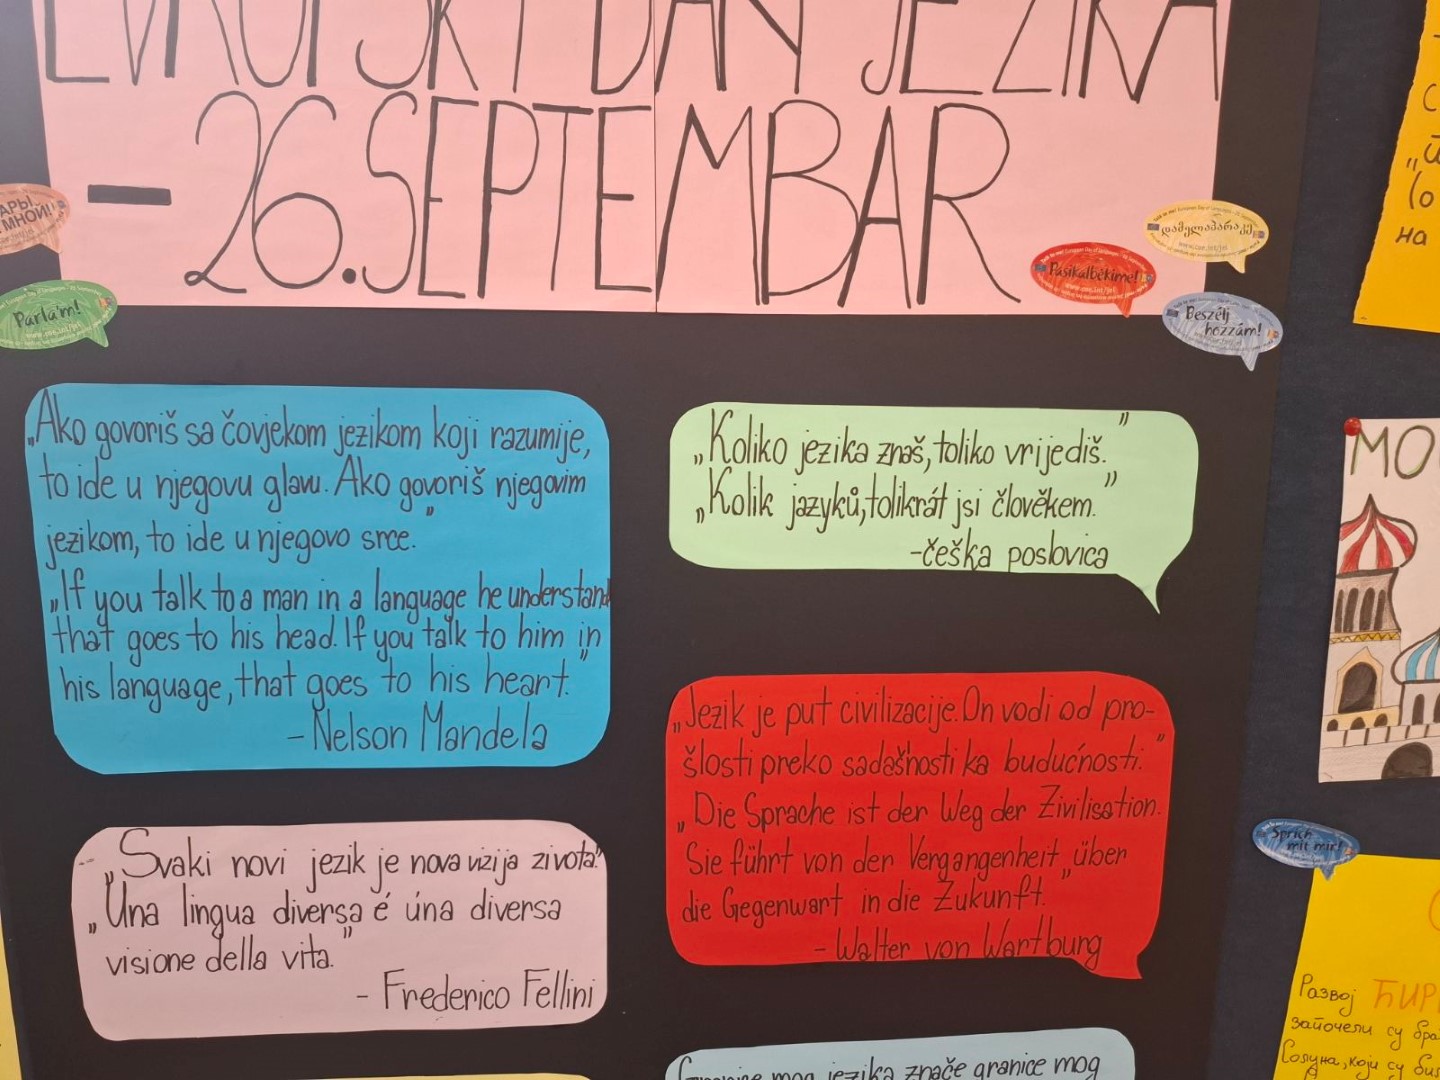 EVROPSKI DAN JEZIKA
– 26. SEPTEMBAR
МНОЙ!
Parlám!
www.coe.int/jel
დამელაპარაკე
Pasikalbėkime!
www.coe.int/jel
Beszélj
hozzám!
„Ako govoriš sa čovjekom jezikom koji razumije,
to ide u njegovu glavu. Ako govoriš njegovim
jezikom, to ide u njegovo srce."
„If you talk to a man in a language he understand
that goes to his head. If you talk to him in
his language, that goes to his heart."
– Nelson Mandela
„Koliko jezika znaš, toliko vrijediš."
„Kolik jazyků, tolikrát jsi člověkem."
-češka poslovica
„Jezik je put civilizacije. On vodi od pro-
šlosti preko sadašnosti ka budućnosti."
„Die Sprache ist der Weg der Zivilisation.
Sie führt von der Vergangenheit über
die Gegenwart in die Zukunft."
- Walter von Wartburg
„Svaki novi jezik je nova vizija zivota."
„Una lingua diversa é úna diversa
visione della vita."
- Frederico Fellini
Granice mog jezika znače granice mog
на
МО
Sprich
mit mir!
Развој ЋИР
започели су бра
Солуна, који су били